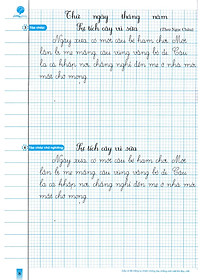 Thứ ngày tháng năm
Tập chép
Sự tích cây vú sữa
(Theo Ngọc Châu)
Ngày xưa, có một cậu bé ham chơi. Một
lần bị mẹ mắng, cậu vùng vằng bỏ đi. Cậu
la cà khắp nơi, chẳng nghĩ đến mẹ ở nhà mỏi
mắt chờ mong.
Tập chép chữ nghiêng
Sự tích cây vú sữa
Ngày xưa, có một cậu bé ham chơi. Một
lần bị mẹ mắng, cậu vùng vằng bỏ đi. Cậu
la cà khắp nơi, chẳng nghĩ đến mẹ ở nhà mỏi
mắt chờ mong.